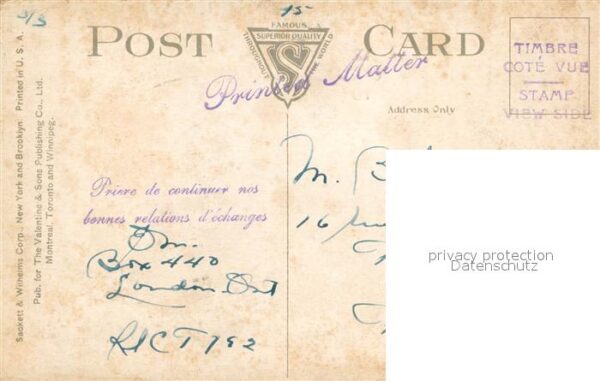 3/3
15
POST CARD
FAMOUS
SUPERIOR QUALITY
THROUGHOUT THE WORLD
S
Printed Matter
TIMBRE
COTÉ VUE
STAMP
VIEW SIDE
Address Only
Sackett & Wilhelms Corp., New York and Brooklyn. Printed in U. S. A.
Pub. for The Valentine & Sons Publishing Co., Ltd.
Montreal, Toronto and Winnipeg.
Prière de continuer nos
bonnes relations d'échanges
Box 440
London Ont
M.
16
privacy protection
Datenschutz